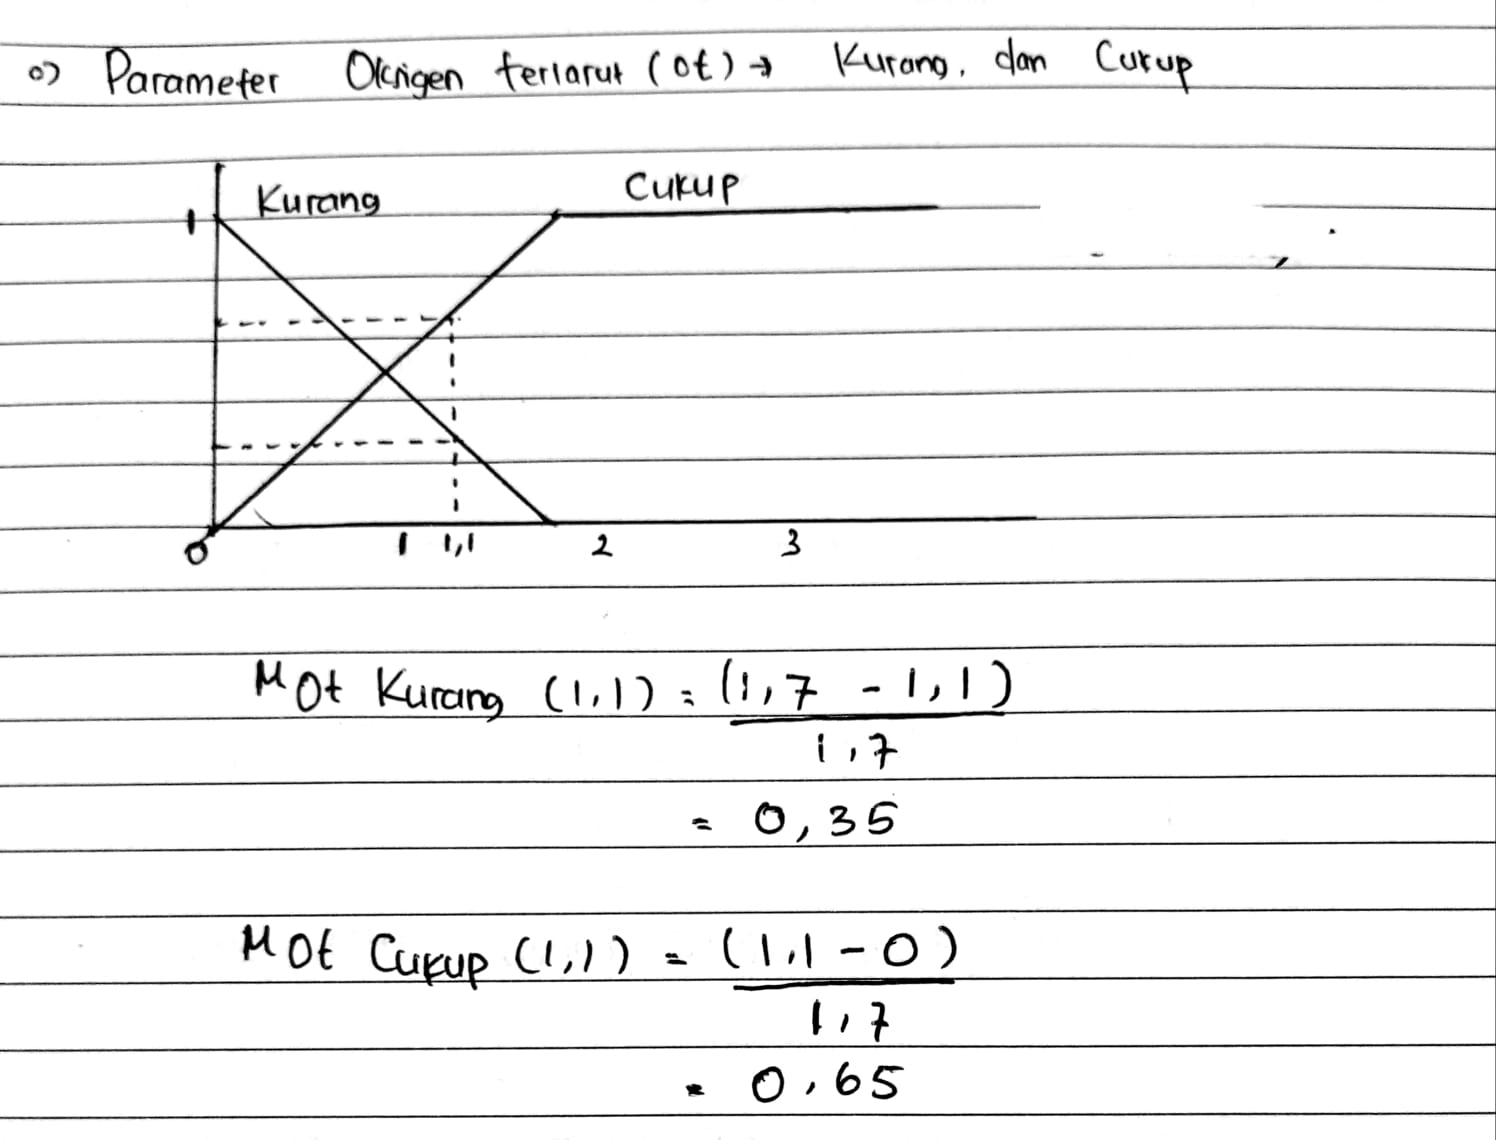 o) Parameter Oksigen terlarut (Ot) → Kurang, dan Cukup
Kurang
Cukup
1
0 1 1,1 2 3
μ Ot Kurang (1,1) = (1,7 - 1,1)
1,7
= 0,35
μ Ot Cukup (1,1) = (1,1 - 0)
1,7
= 0,65